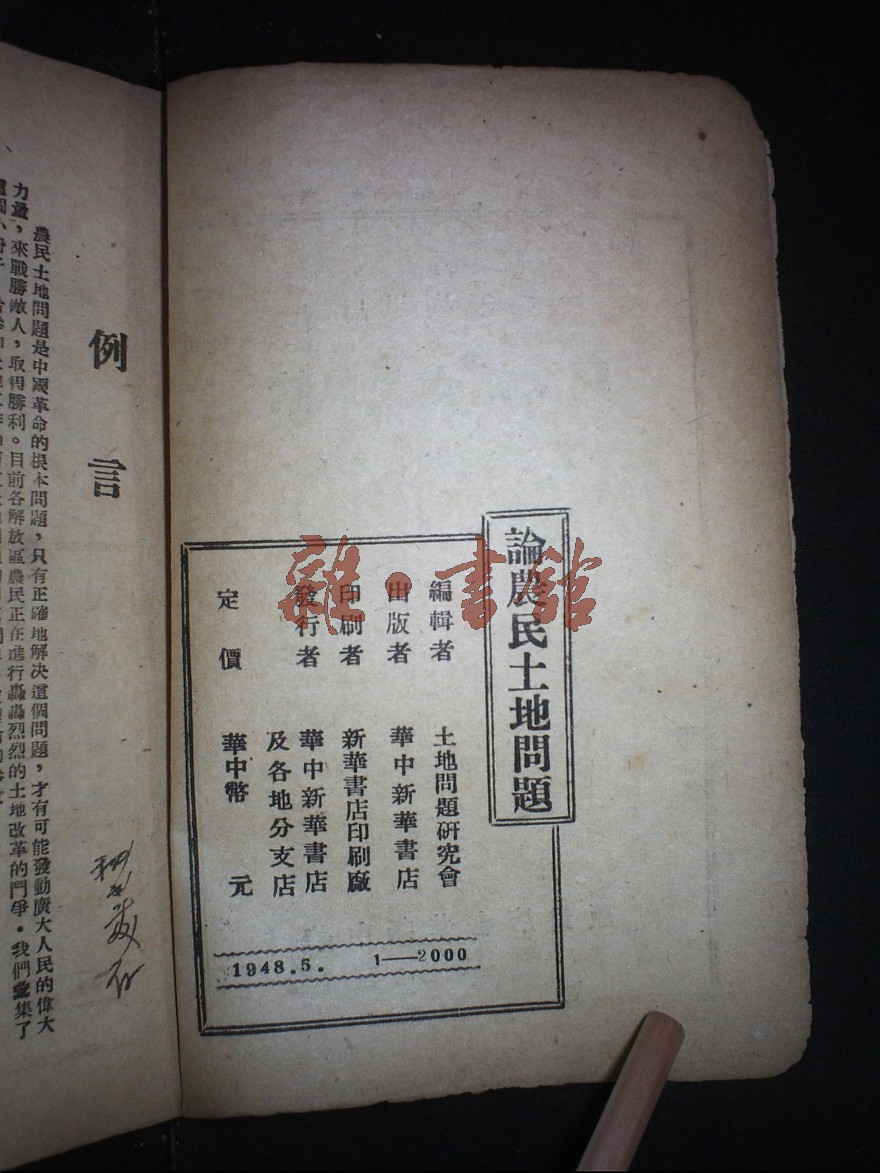 論農民土地問題
編輯者 土地問題研究會
出版者 華中新華書店
印刷者 新華書店印刷廠
發行者 華中新華書店
及各地分支店
定價 華中幣 元
1948.5. 1——2000
雜·書館
例言
農民土地問題是中國革命的根本問題，只有正確地解决這個問題，才有可能發動廣大人民的偉大
力量，來戰勝敵人，取得勝利。目前各解放區農民正在進行轟轟烈烈的土地改革的鬥爭。我們彙集了